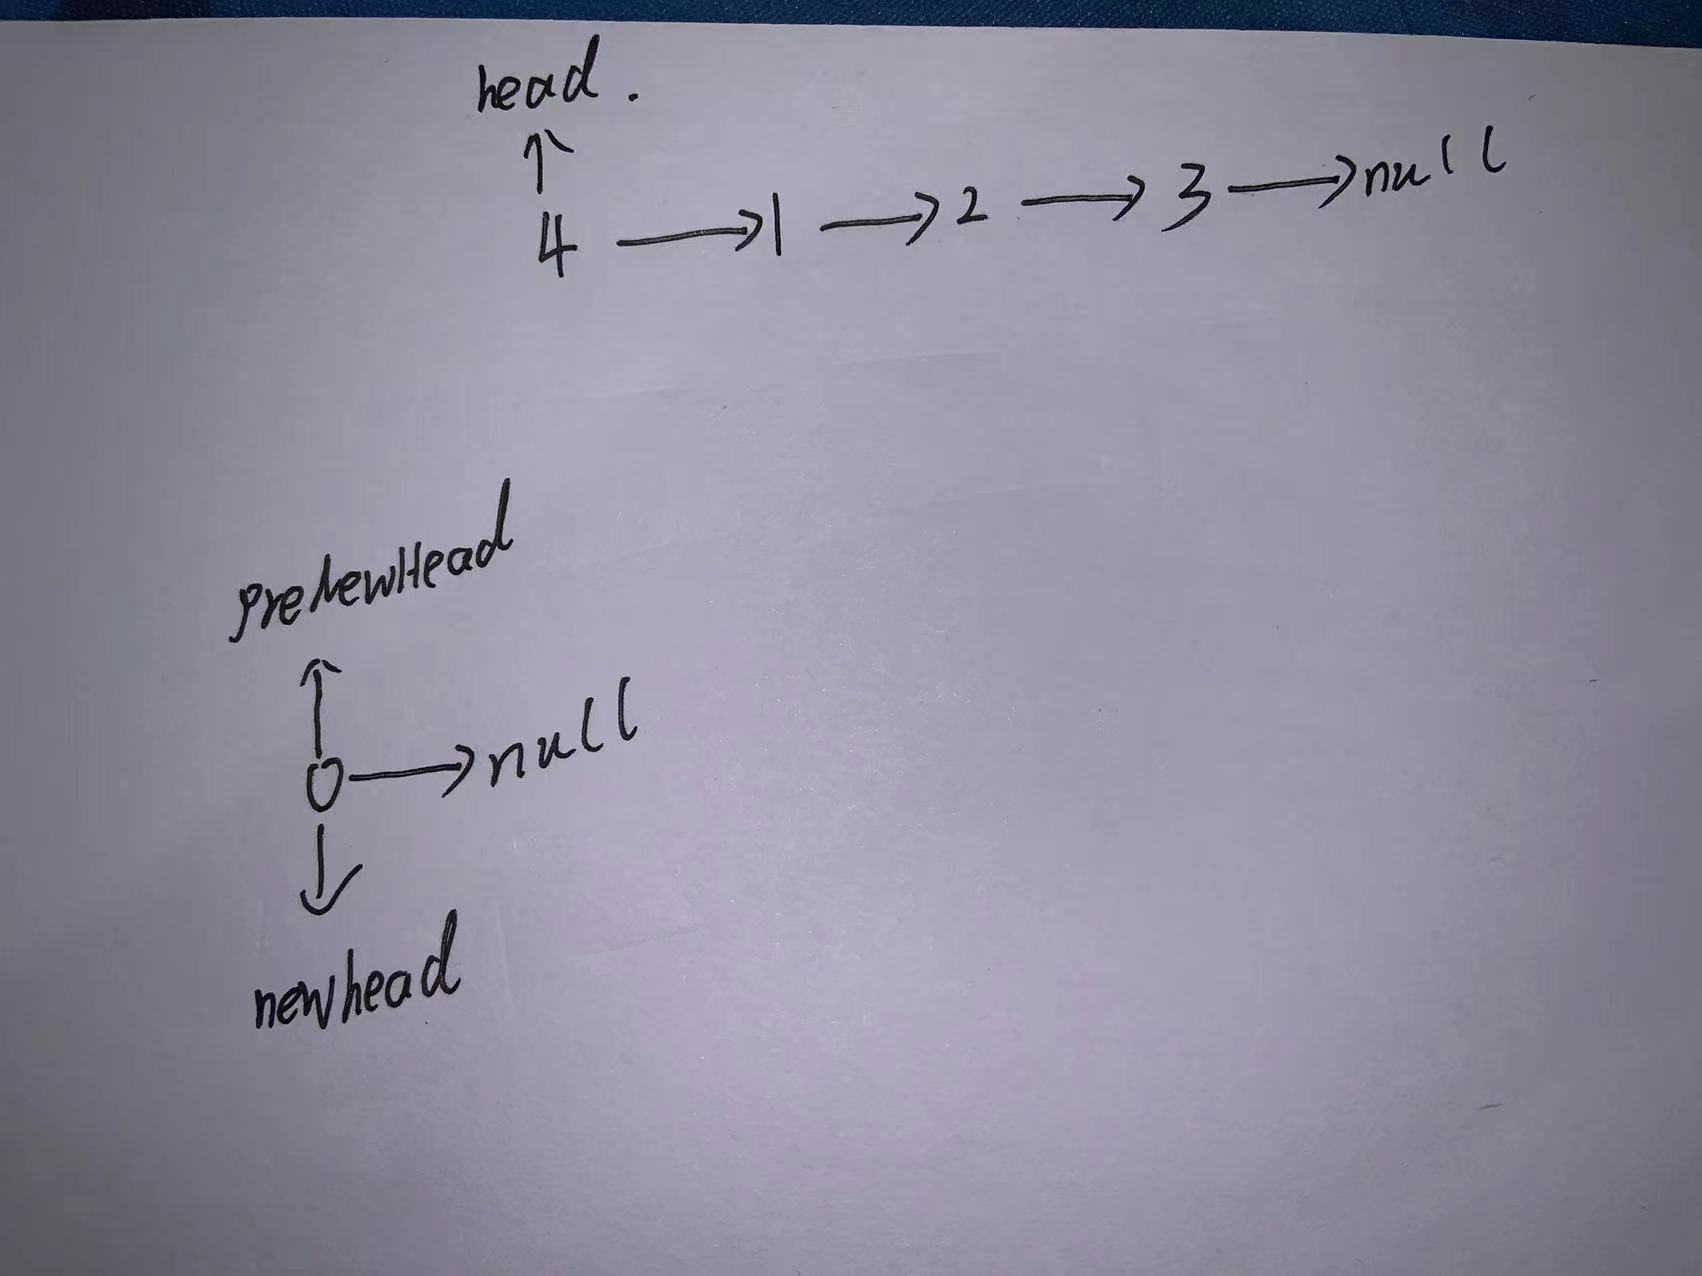 head.
↑
4 → 1 → 2 → 3 → null
preNewHead
↑
0 → null
↓
newhead